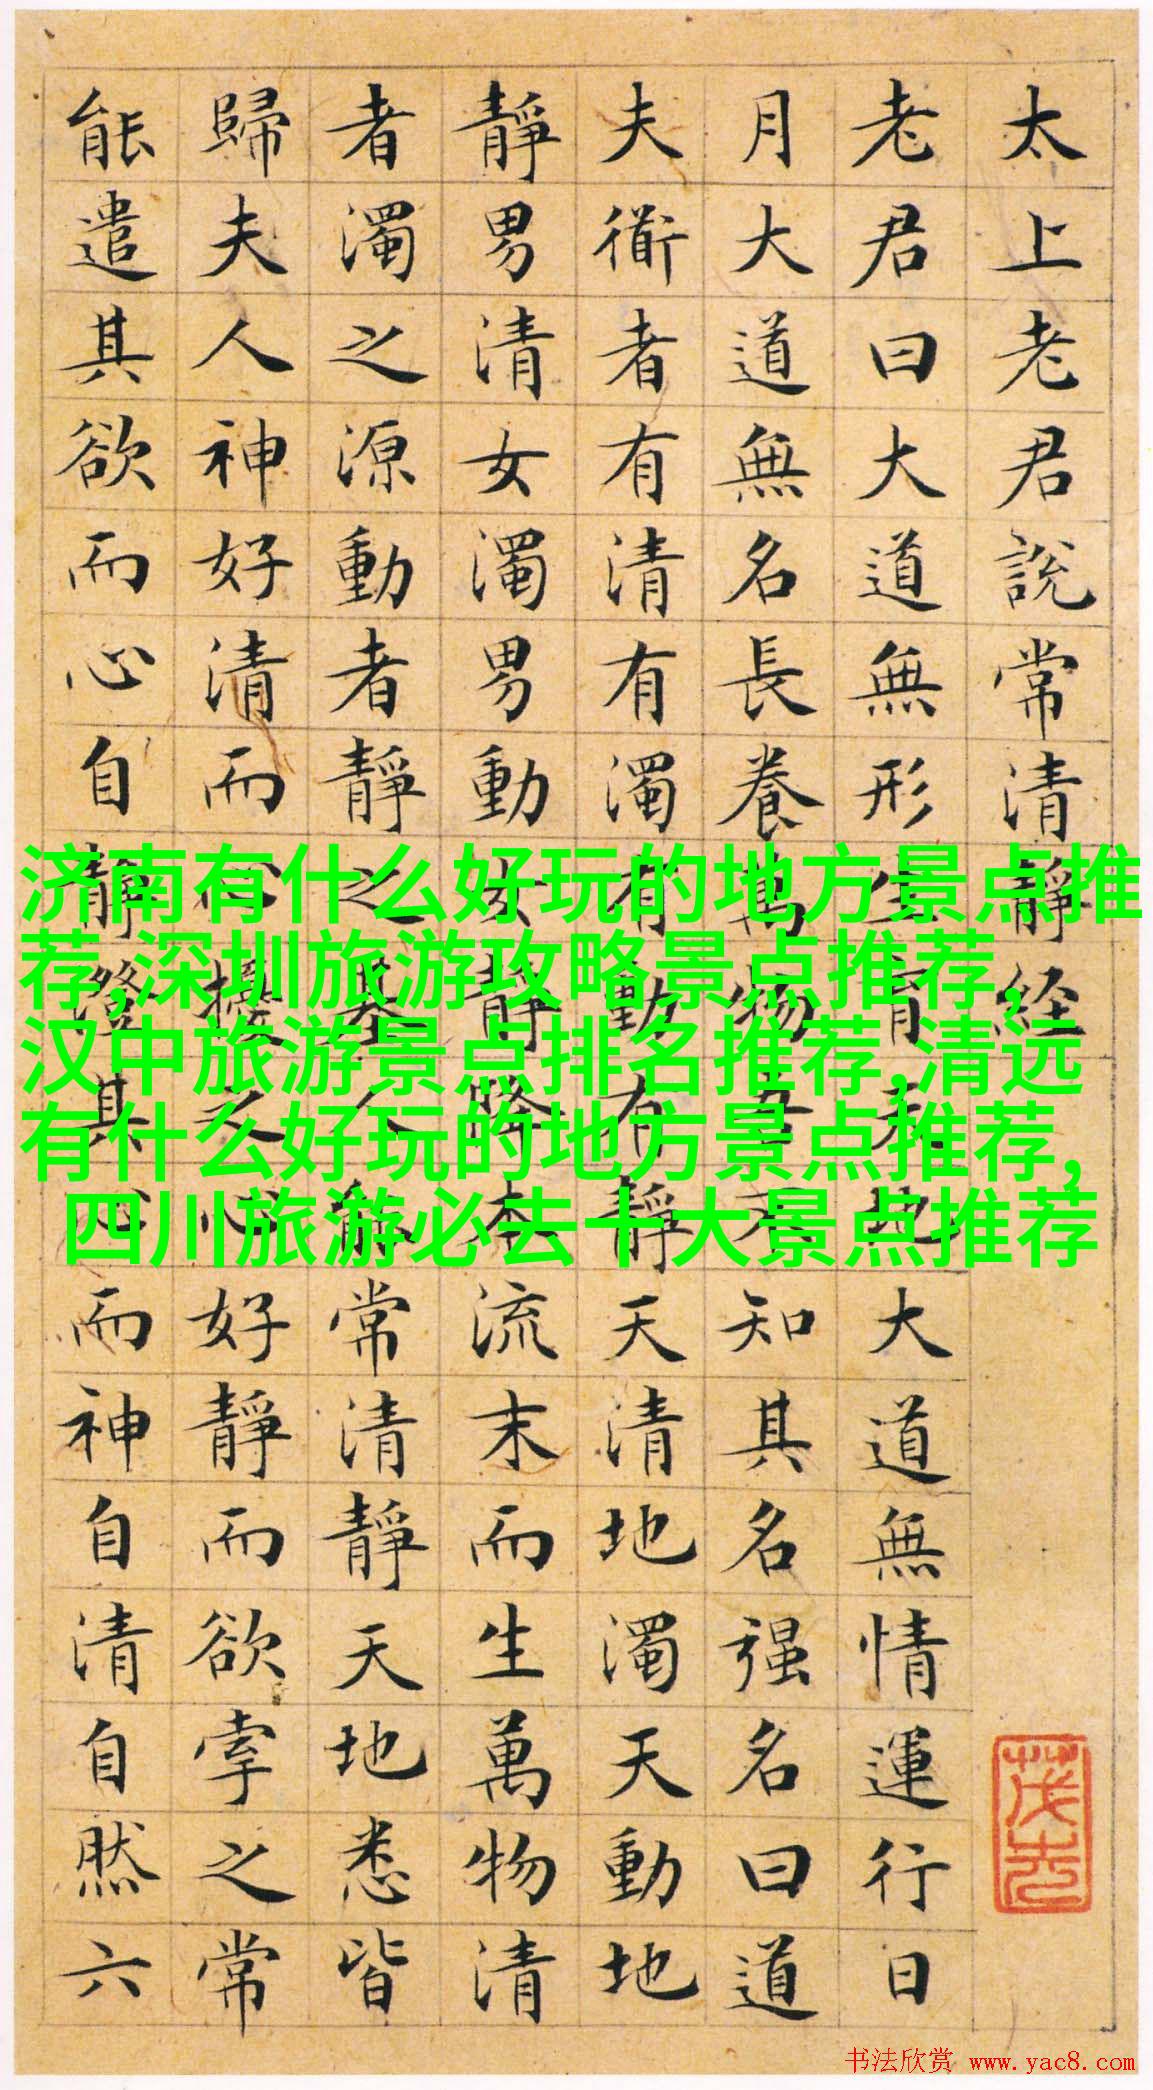 太上老君說常清靜経
老君曰大道無形生育天地大道無情運行日
月大道無名長養萬物吾不知其名强名曰道
夫衜者有清有濁有動有靜天清地濁天動地
靜男清女濁男動女靜降本流末而生萬物清
者濁之源動者靜之基人能常清靜天地悉皆
歸夫人神好清而心擾之心好靜而欲牽之常
能遣其欲而心自靜澄其心而神自清自然六
济南有什么好玩的地方景点推
荐,深圳旅游攻略景点推荐,
汉中旅游景点排名推荐,清远
有什么好玩的地方景点推荐,
四川旅游必去十大景点推荐
书法欣赏 www.yac8.com